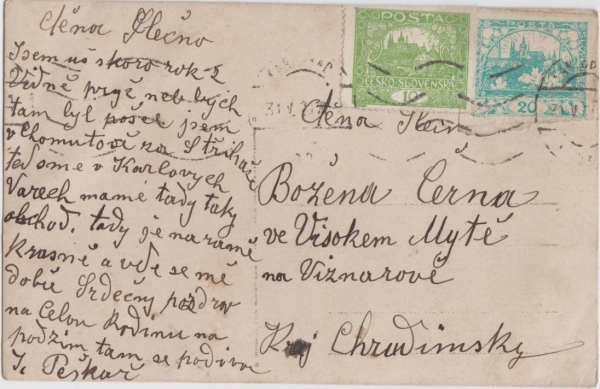 Ctěna Slečno
Jsem uš skoro rok z
Vidně prýč neb bych
tam byl pošel jsem
v Chomutově na Střihače
teď sme v Karlových
Varech mamé tady taky
obchod. tady je naramě
Krasně a vde se mě
dobře Srdečný pozdrav
na Celou Rodinu na
podzim tam se podivam
J. Peškař
POSTA
ČESKO-SLOVENSKÁ
POŠTA
20
31 V
Ctěna Slečn
Božena Černa
ve Visokem Mytě
na Viznarově
Kraj Chrudimsky